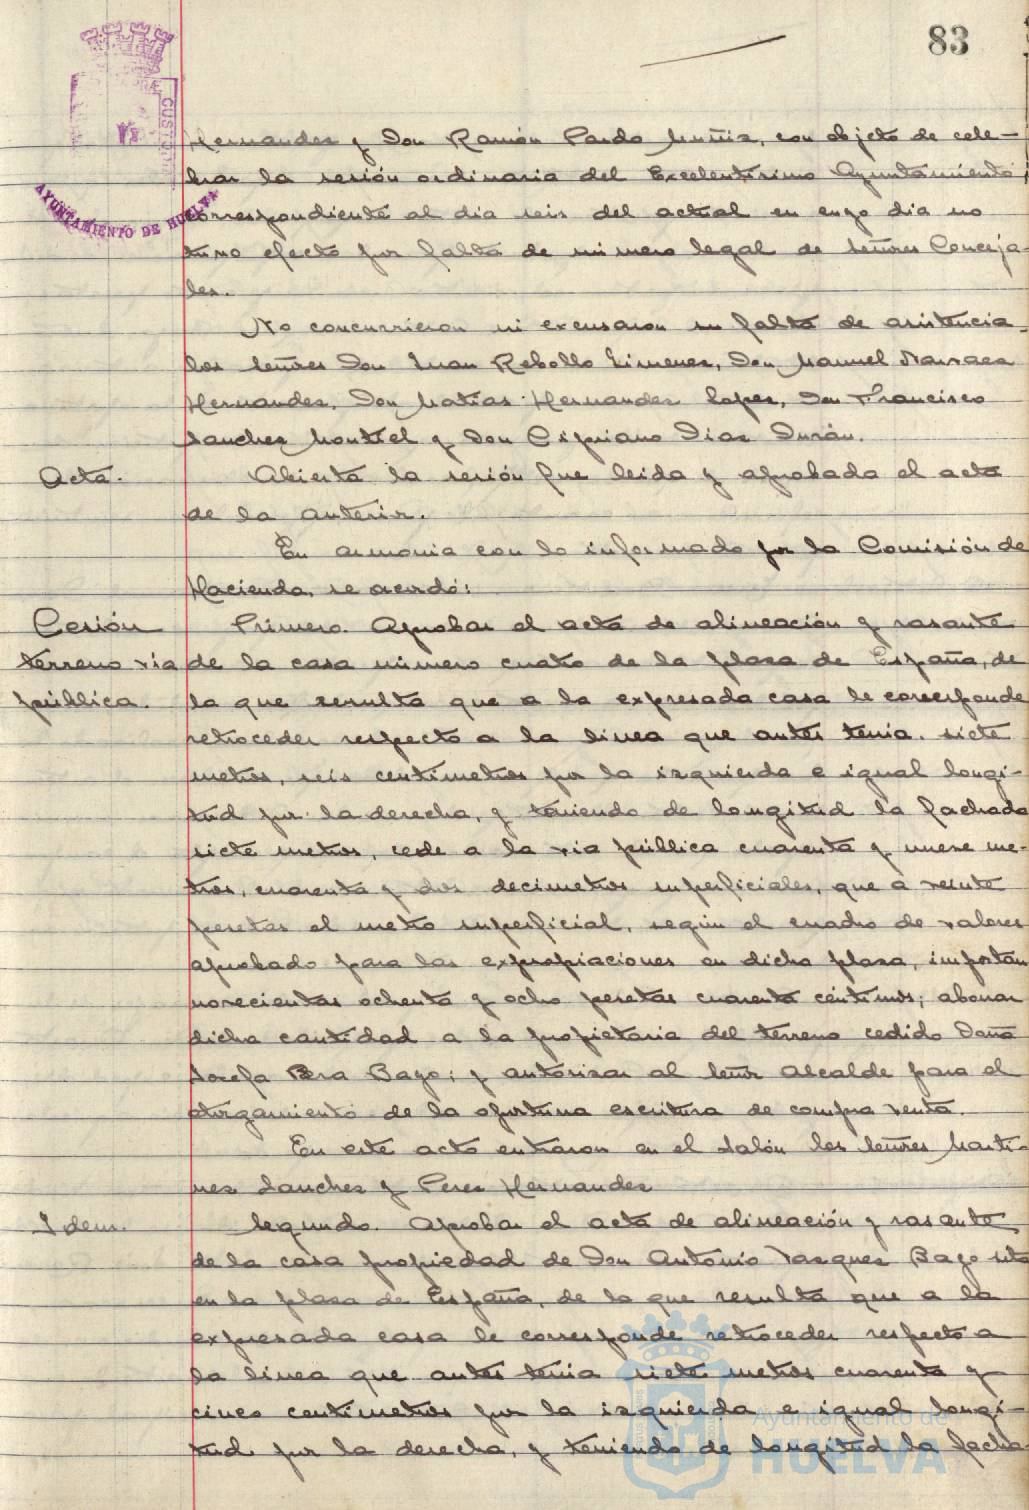 83
CUSTOD
AYUNTAMIENTO DE HUELVA
Hernandez y Don Ramón Pardo Muñiz, con objeto de cele-
brar la sesión ordinaria del Excelentisimo Ayuntamiento
correspondiente al dia seis del actual en cuyo dia no
tuvo efecto por falta de número legal de Señores Conceja-
les.
No concurrieron ni excusaron su falta de asistencia
los Señores Don Juan Rebollo Jimenez, Don Manuel Narvaez
Hernandez, Don Matías Hernandez Lopez, Don Francisco
Sanchez Montiel y Don Cipriano Diaz Durán.
Acta.
Abierta la sesión fue leida y aprobada el acta
de la anterior.
En armonia con lo informado por la Comisión de
Hacienda, se acordó:
Cesión
terreno via
pública.
Primero. Aprobar el acta de alineación y rasante
de la casa número cuatro de la plaza de España, de
la que resulta que a la expresada casa le corresponde
retroceder respecto a la linea que antes tenia, siete
metros, seis centimetros por la izquierda e igual longi-
tud por la derecha, y teniendo de longitud la fachada
siete metros, cede a la via pública cuarenta y nueve me-
tros, cuarenta y dos decimetros superficiales, que a veinte
pesetas el metro superficial, según el cuadro de valores
aprobado para las expropiaciones en dicha plaza, importan
novecientas ochenta y ocho pesetas cuarenta céntimos; abonar
dicha cantidad a la propietaria del terreno cedido Doña
Josefa Bago; y autorizar al Señor Alcalde para el
otorgamiento de la oportuna escritura de compra venta.
En este acto entraron en el salón los Señores Marti-
nez Sanchez y Perez Hernandez
Idem.
Segundo. Aprobar el acta de alineación y rasante
de la casa propiedad de Don Antonio Vazquez Bago sita
en la plaza de España, de la que resulta que a la
expresada casa le corresponde retroceder respecto a
la linea que antes tenia siete metros cuarenta y
cinco centimetros por la izquierda e igual longi-
tud por la derecha, y teniendo de longitud la facha-
Ayuntamiento de
HUELVA